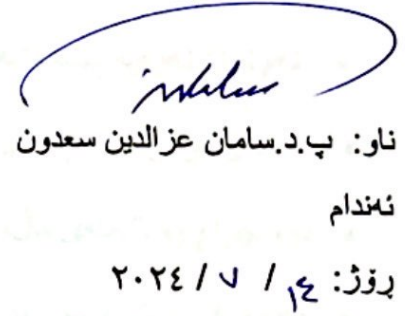 ناو: پ.د.سامان عزالدين سعدون
ئەندام
ڕۆژ: ١٤ / ٧ / ٢٠٢٤